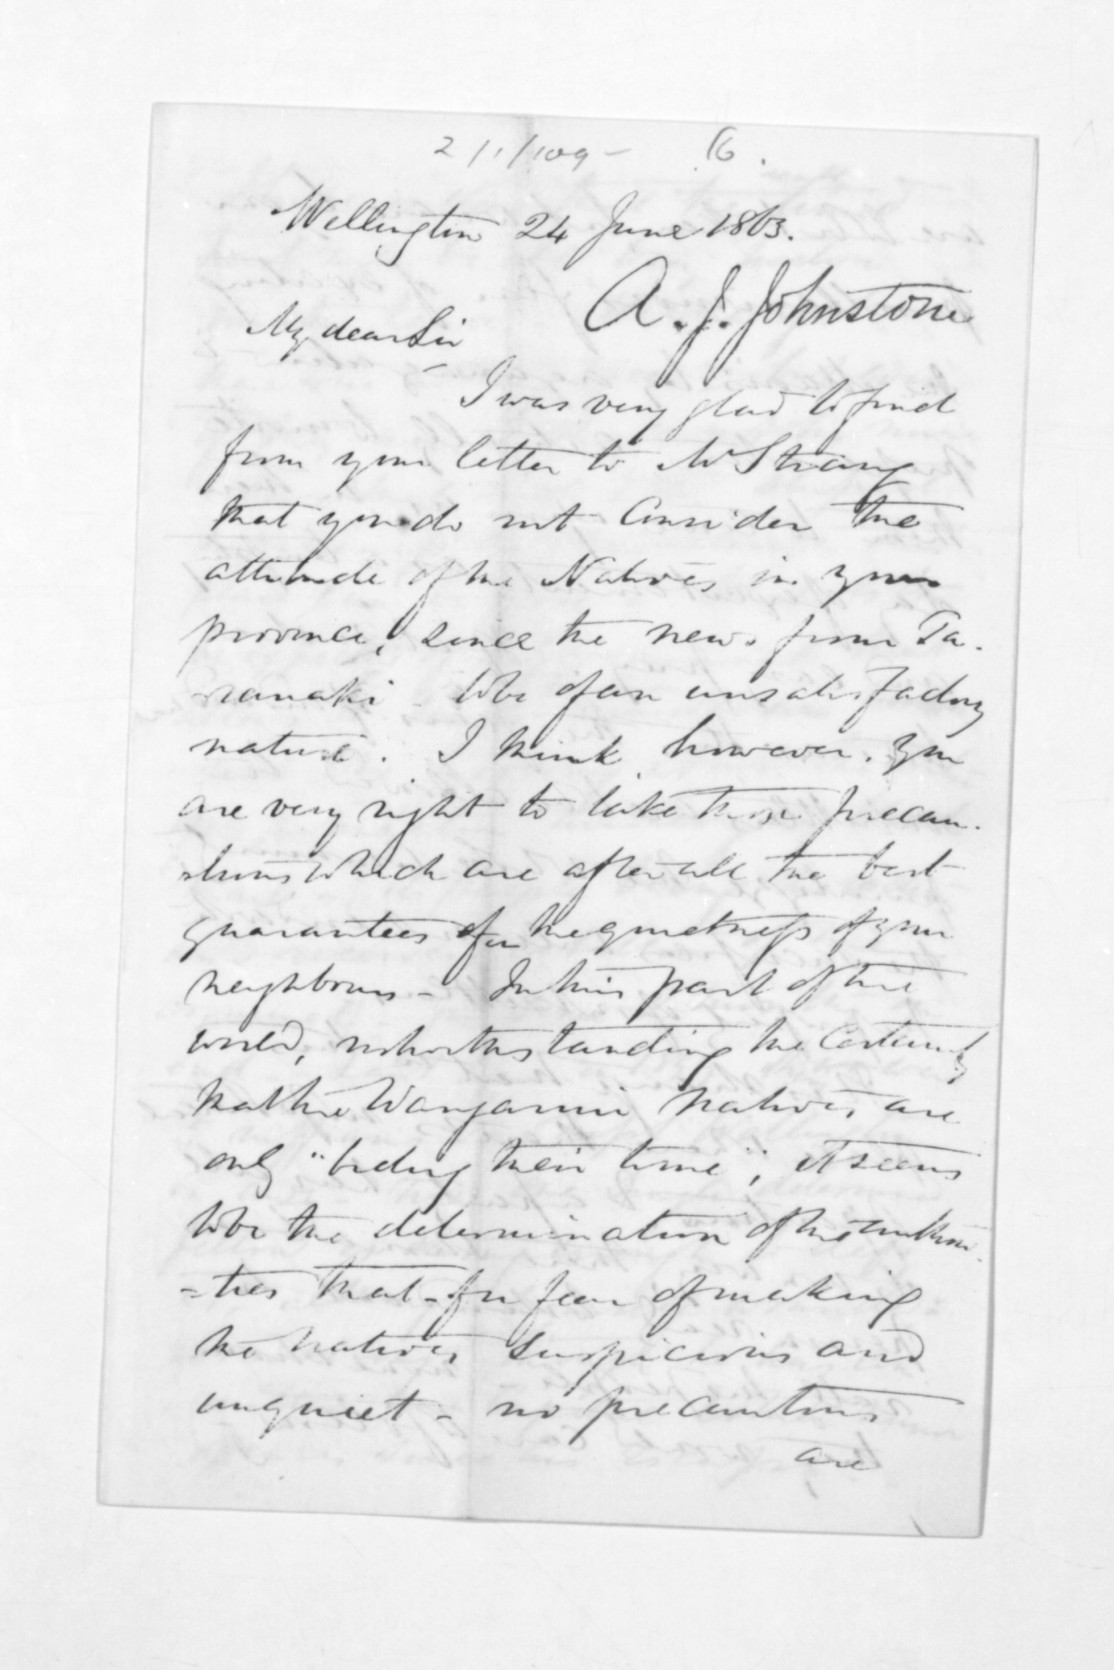 2/1/109 - 6.
Wellington 24 June 1863.
A. J. Johnstone
My dear Sir
I was very glad to find
from your letter to Mr Strang
that you do not consider the
attitude of the Natives in your
province, since the news from Ta-
ranaki to be of an unsatisfactory
nature. I think however, you
are very right to take those precau-
tions which are after all the best
guarantees for the quietness of your
neighbours - In this part of the
world, notwithstanding the certainty
that the Wanganui natives are
only "biding their time", it seems
to be the determination of the authori-
-ties that - for fear of making
the natives suspicious and
unquiet - no precautions
are